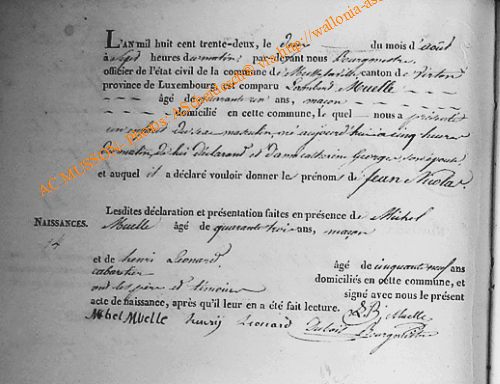 L'AN mil huit cent trente-deux, le deux du mois d'août
à sept heures du matin par-devant nous Bourgmestre
officier de l'état civil de la commune de canton de Virton
province de Luxembourg est comparu Lambert Muelle
âgé de quarante un ans, maçon
domicilié en cette commune, Lequel nous a présenté
un enfant du sexe masculin, né aujourd'hui à cinq heures
du matin, de lui déclarant et d'anne catherine Georges son épouse
et auquel il a déclaré vouloir donner le prénoms de Jean Nicolas
Lesdites déclaration et présentation faites en présence de Michel
NAISSANCES.
Muelle âgé de quarante trois ans, maçon
et de henri Leonard âgé de cinquante neuf ans
cabartier domiciliés en cette commune, et
ont les père et témoins signé avec nous le présent
acte de naissance, après qu'il leur en a été fait lecture. Muelle
Michel Muelle henrij Leonard Bourgmestre
AC MUSSON, photos via http://wallonia-asbl